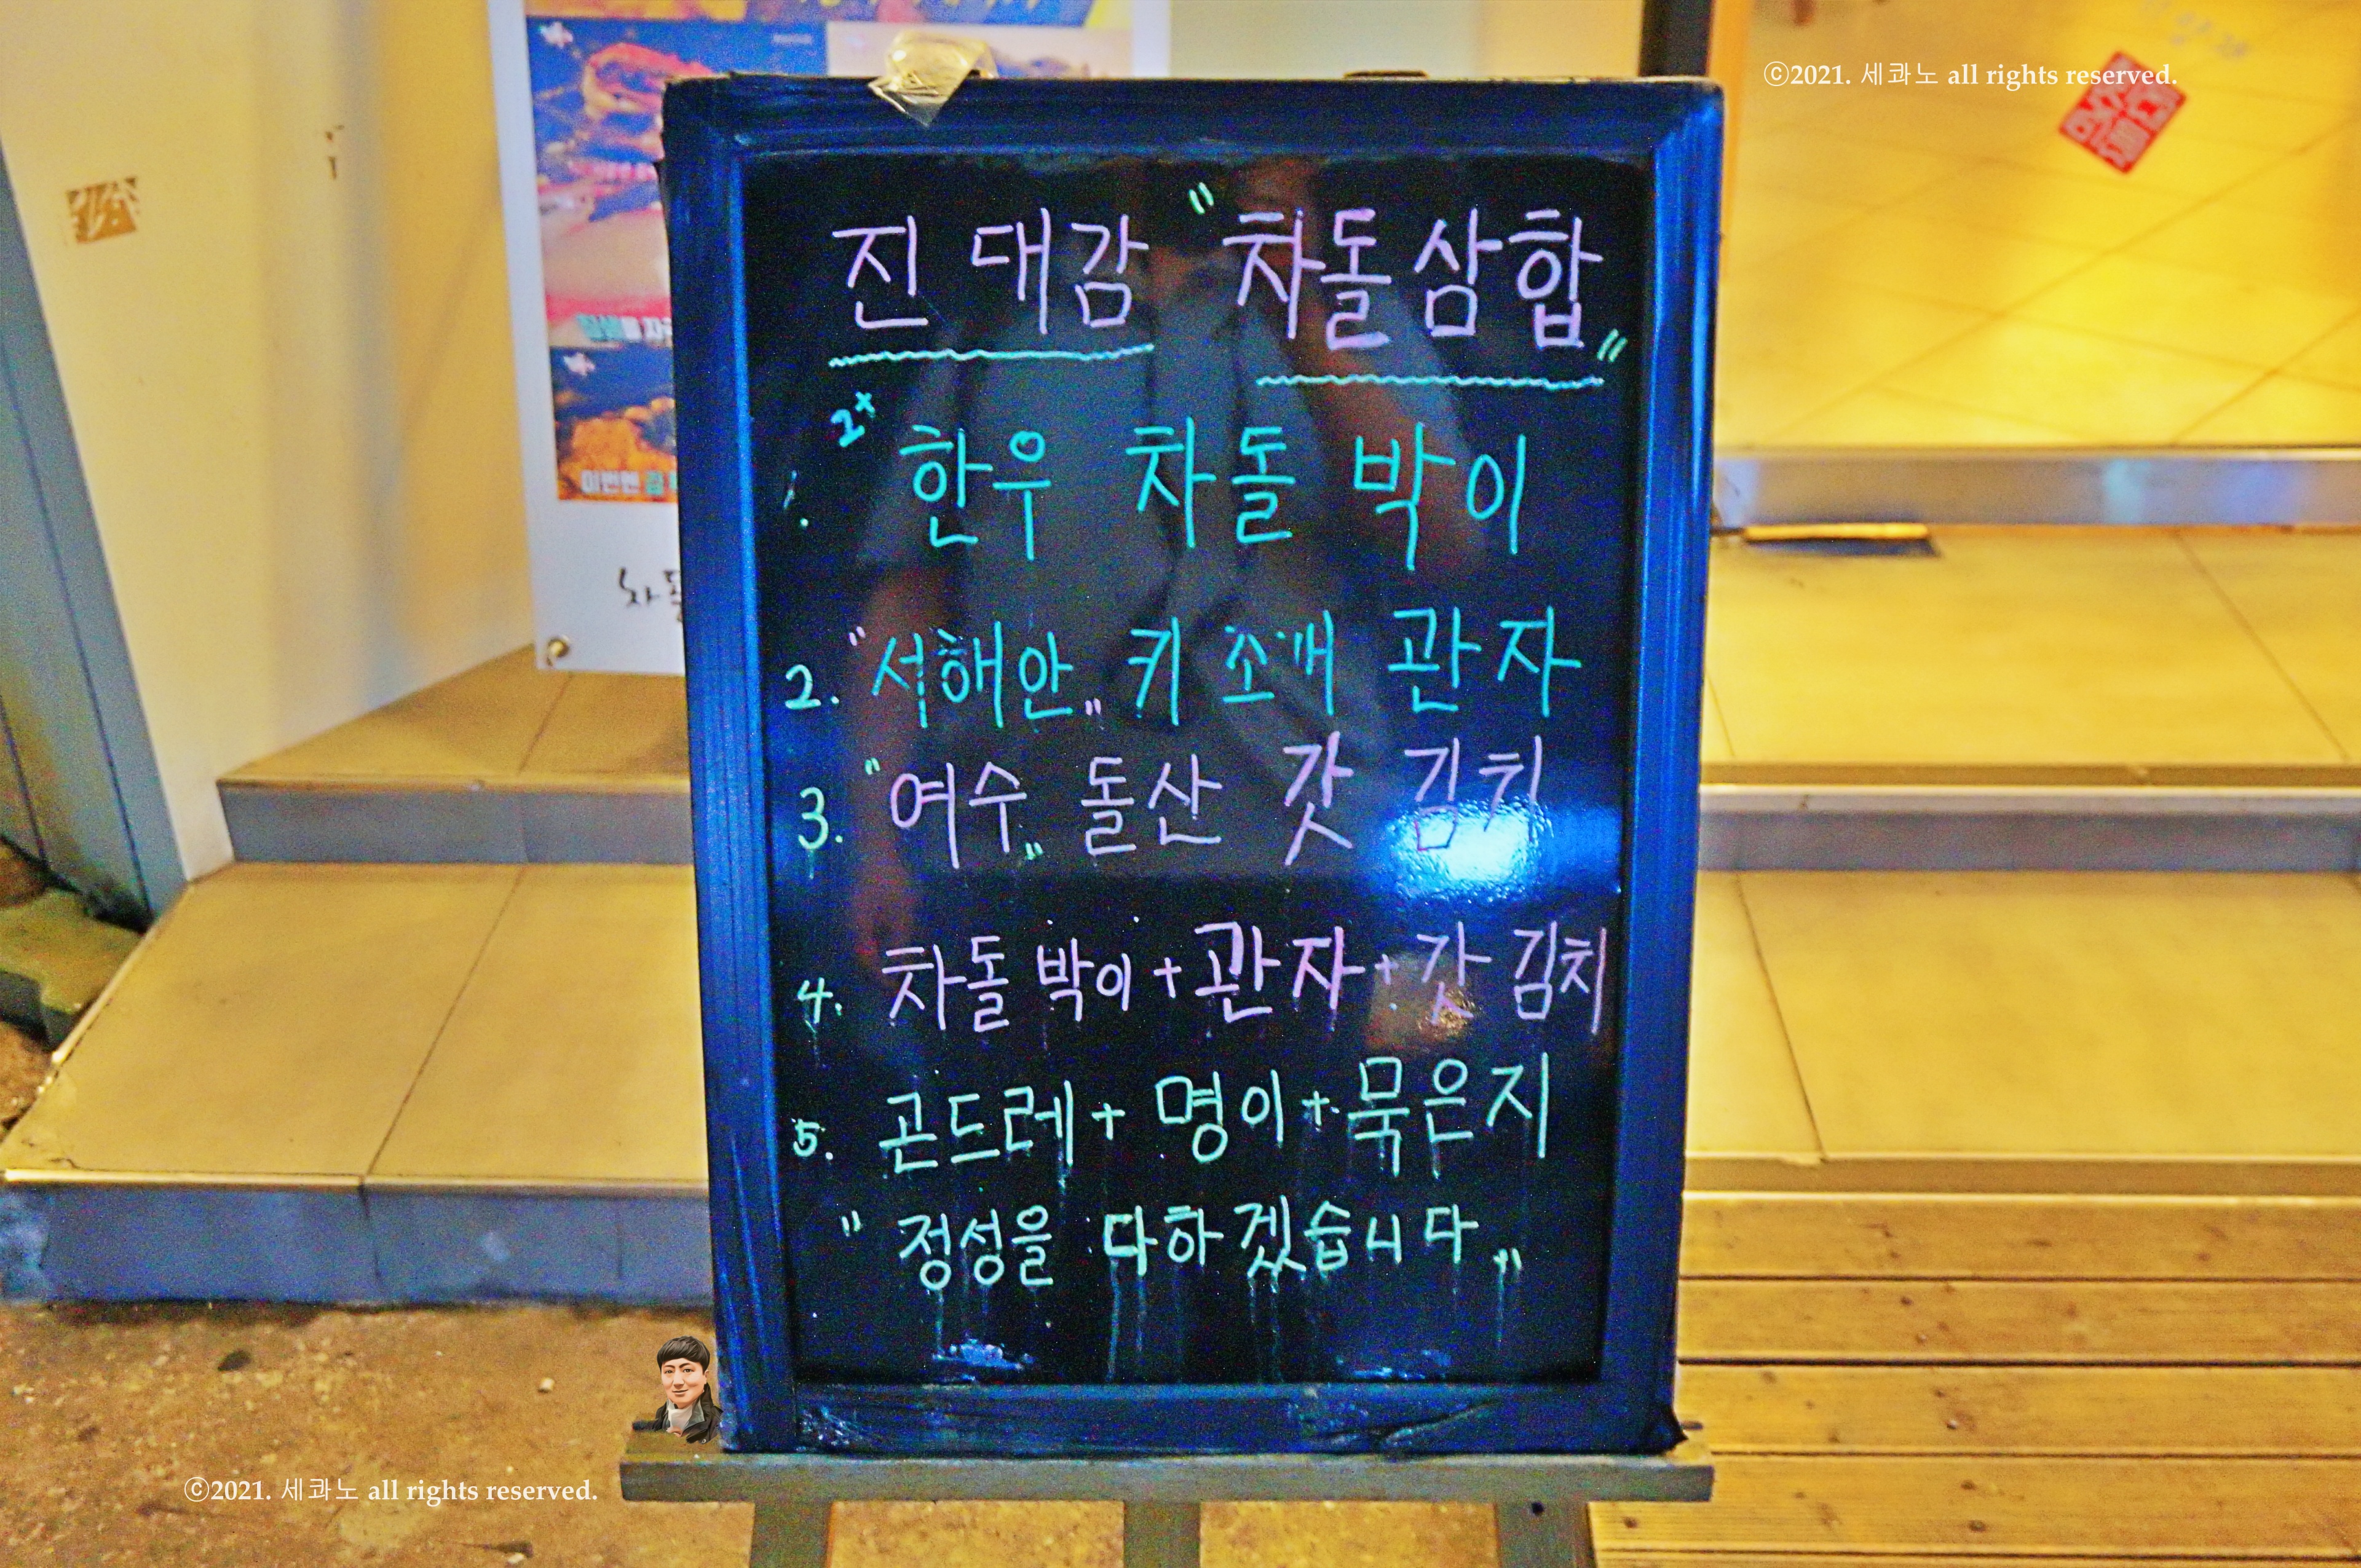 ⓒ2021. 세콰노 all rights reserved.
진대감 "차돌삼합"
1. 2+ 한우 차돌박이
2. "서해안" 키조개 관자
3. "여수" 돌산 갓 김치
4. 차돌박이+관자+갓김치
5. 곤드레+명이+묵은지
"정성을 다하겠습니다"
ⓒ2021. 세콰노 all rights reserved.